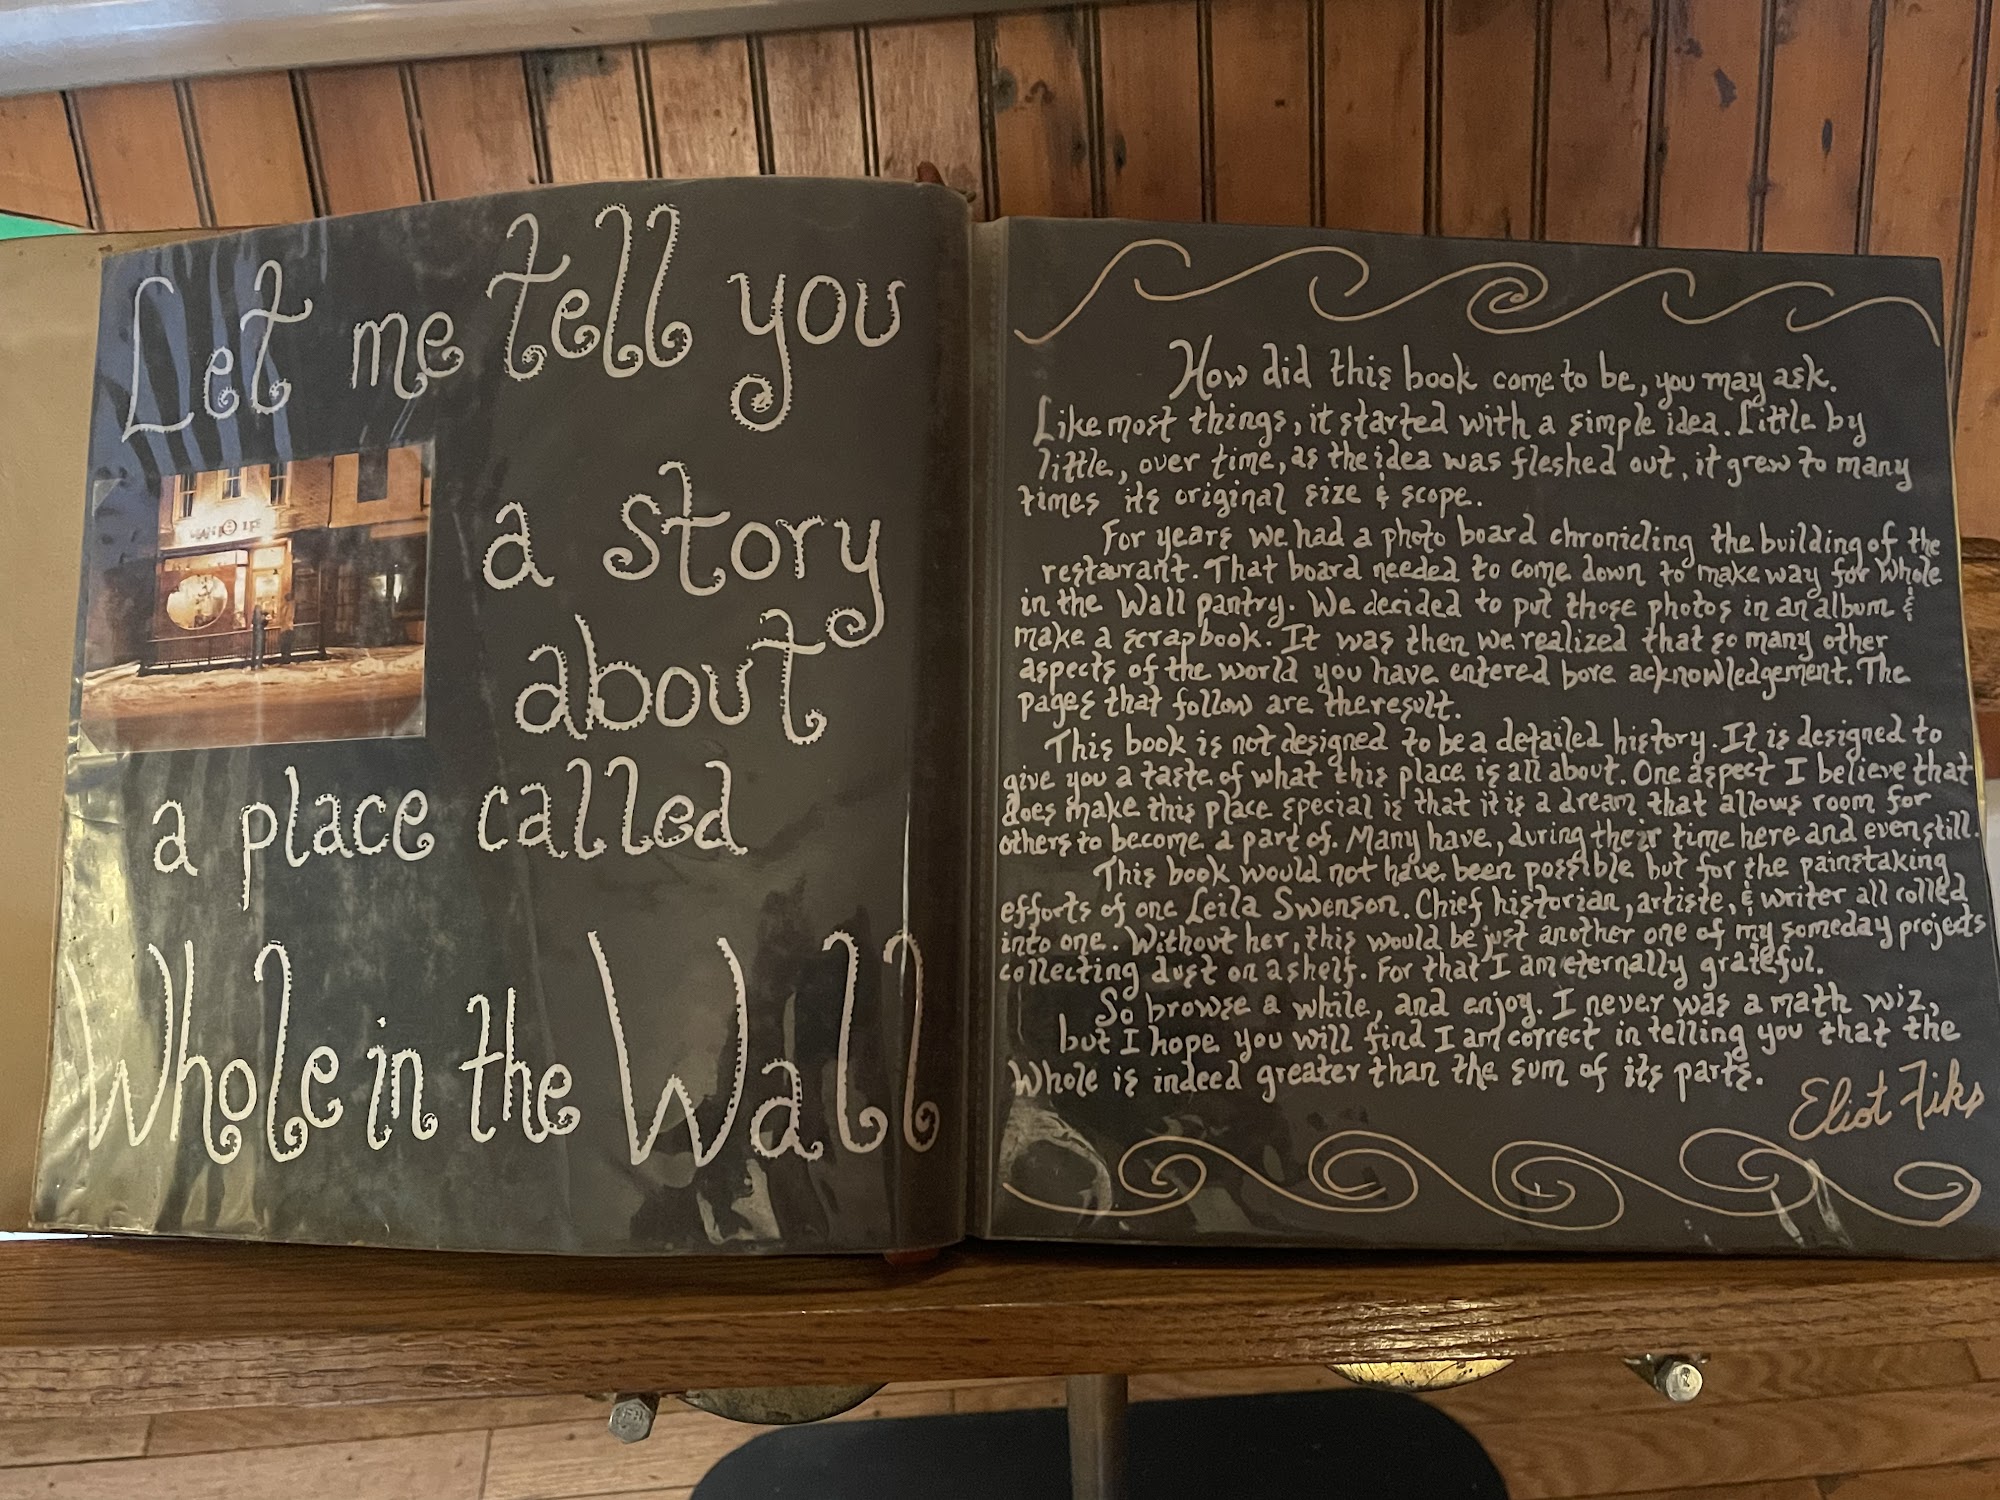 Let me tell you
a story
about
a place called
Whole in the Wall
How did this book come to be, you may ask.
Like most things, it started with a simple idea. Little by
little, over time, as the idea was fleshed out, it grew to many
times its original size & scope.
For years we had a photo board chronicling the building of the
restaurant. That board needed to come down to make way for Whole
in the Wall pantry. We decided to put those photos in an album &
make a scrapbook. It was then we realized that so many other
aspects of the world you have entered bore acknowledgement. The
pages that follow are the result.
This book is not designed to be a detailed history. It is designed to
give you a taste of what this place is all about. One aspect I believe that
does make this place special is that it is a dream that allows room for
others to become a part of. Many have, during their time here and even still.
This book would not have been possible but for the painstaking
efforts of one Leila Swenson. Chief historian, artiste, & writer all rolled
into one. Without her, this would be just another one of my someday projects
collecting dust on a shelf. For that I am eternally grateful.
So browse a while, and enjoy. I never was a math wiz,
but I hope you will find I am correct in telling you that the
Whole is indeed greater than the sum of its parts.
Eliot Fiks